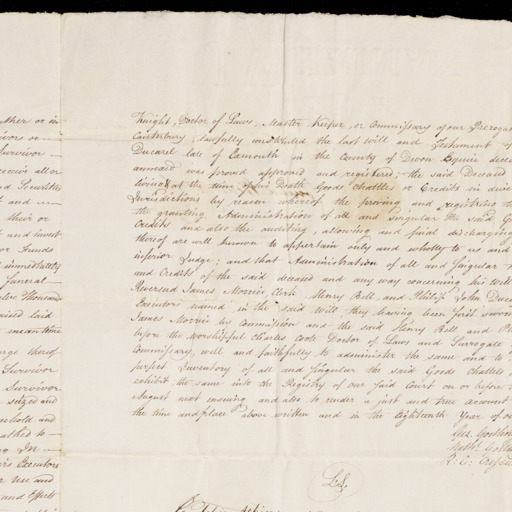 ther or in
vivors or
Survivor
receive all or
and Securities
d and
their or
and invest
or Funds
immediately
Funeral
Thousand
raised laid
mean time
thereof
Survivor
Survivor
seized and
household and
bequeathed to
In
his Executors
Use and
and Effects
Knight, Doctor of Laws, Master Keeper, or Commissary of our Prerogat
Canterbury, lawfully constituted the last will and Testament of
Ducarel late of Exmouth in the County of Devon Esquire dece
annexed was proved approved and registered; the said Deceased
living & at the time of his Death Goods Chattles or Credits in dive
Jurisdictions by reason whereof the proving and registering t
the granting Administration of all and singular the said G
Credits and also the auditing, allowing and final discharging
thereof are well known to appertain only and wholly to us and
inferior Judge; and that Administration of all and Singular t
and Credits of the said deceased and any way concerning his will
Reverend James Morris Clerk Henry Bell and Philip John Duca
Executors named in the said will they having been first sworn
James Morris by Commission and the said Henry Bell and Ph
before the worshipful Charles Coote Doctor of Laws and Surrogate
Commissary, well and faithfully to administer the same and to
perfect Inventory of all and singular the said Goods Chattles
exhibit the same into the Registry of our said Court on or before
August next ensuing and also to render a just and true account
the time and place above written and in the Eighteenth Year of ou
Geo. Gostling
Nathl. Gostling
R. C. Creswell
LS